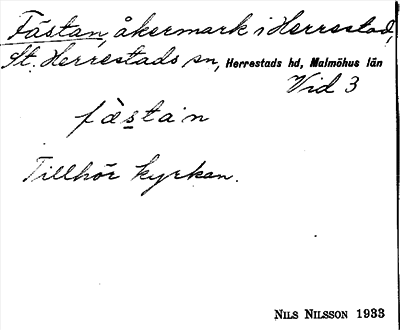 Fästan, åkermark i Herrestad,
St. Herrestads sn, Herrestads hd, Malmöhus län
Vid 3
fàsta·n
Tillhör kyrkan.
NILS NILSSON 1933